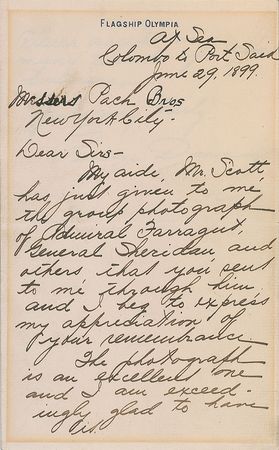 FLAGSHIP OLYMPIA
At Sea
Colombo to Port Said
June 29, 1899.
Messers Pach Bros
New York City-
Dear Sirs-
My aide, Mr. Scott,
has just given to me
the group photograph
of Admiral Farragut,
General Sheridan, and
others that you sent
to me through him
and I beg to express
my appreciation of
your remembrance
The photograph
is an excellent one
and I am exceed-
ingly glad to have
it.